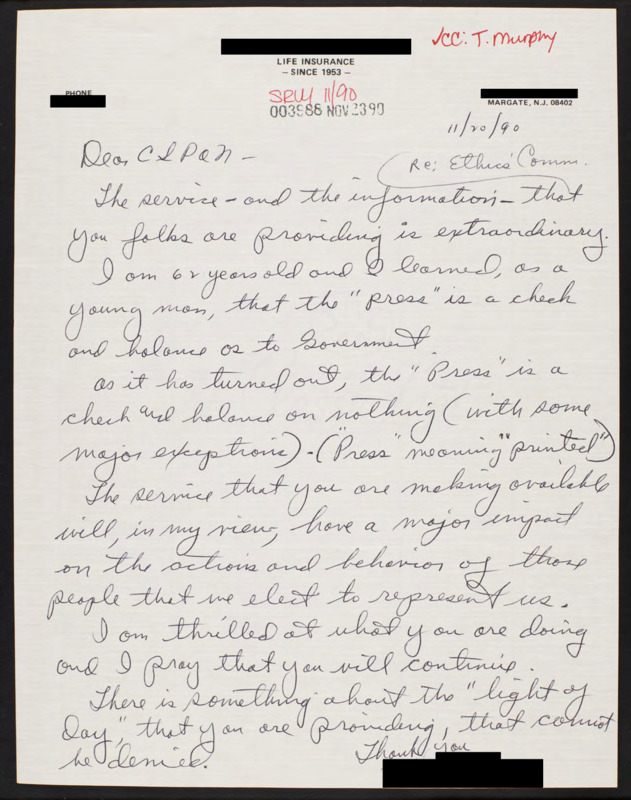 √CC: T. Murphy
LIFE INSURANCE
– SINCE 1953 –
PHONE
SRW 11/90
003988 NOV 23 90
MARGATE, N.J. 08402
11/20/90
Dear CSPAN –
Re: Ethics Comm.
The service – and the information – that
you folks are providing is extraordinary.
I am 62 years old and I learned, as a
young man, that the "press" is a check
and balance as to Government.
as it has turned out, the "Press" is a
check and balance on nothing (with some
major exceptions). ("Press" meaning "printed")
The service that you are making available
will, in my view, have a major impact
on the actions and behavior of those
people that we elect to represent us.
I am thrilled at what you are doing
and I pray that you will continue.
There is something about the "light of
Day", that you are providing, that cannot
be denied.
Thank you